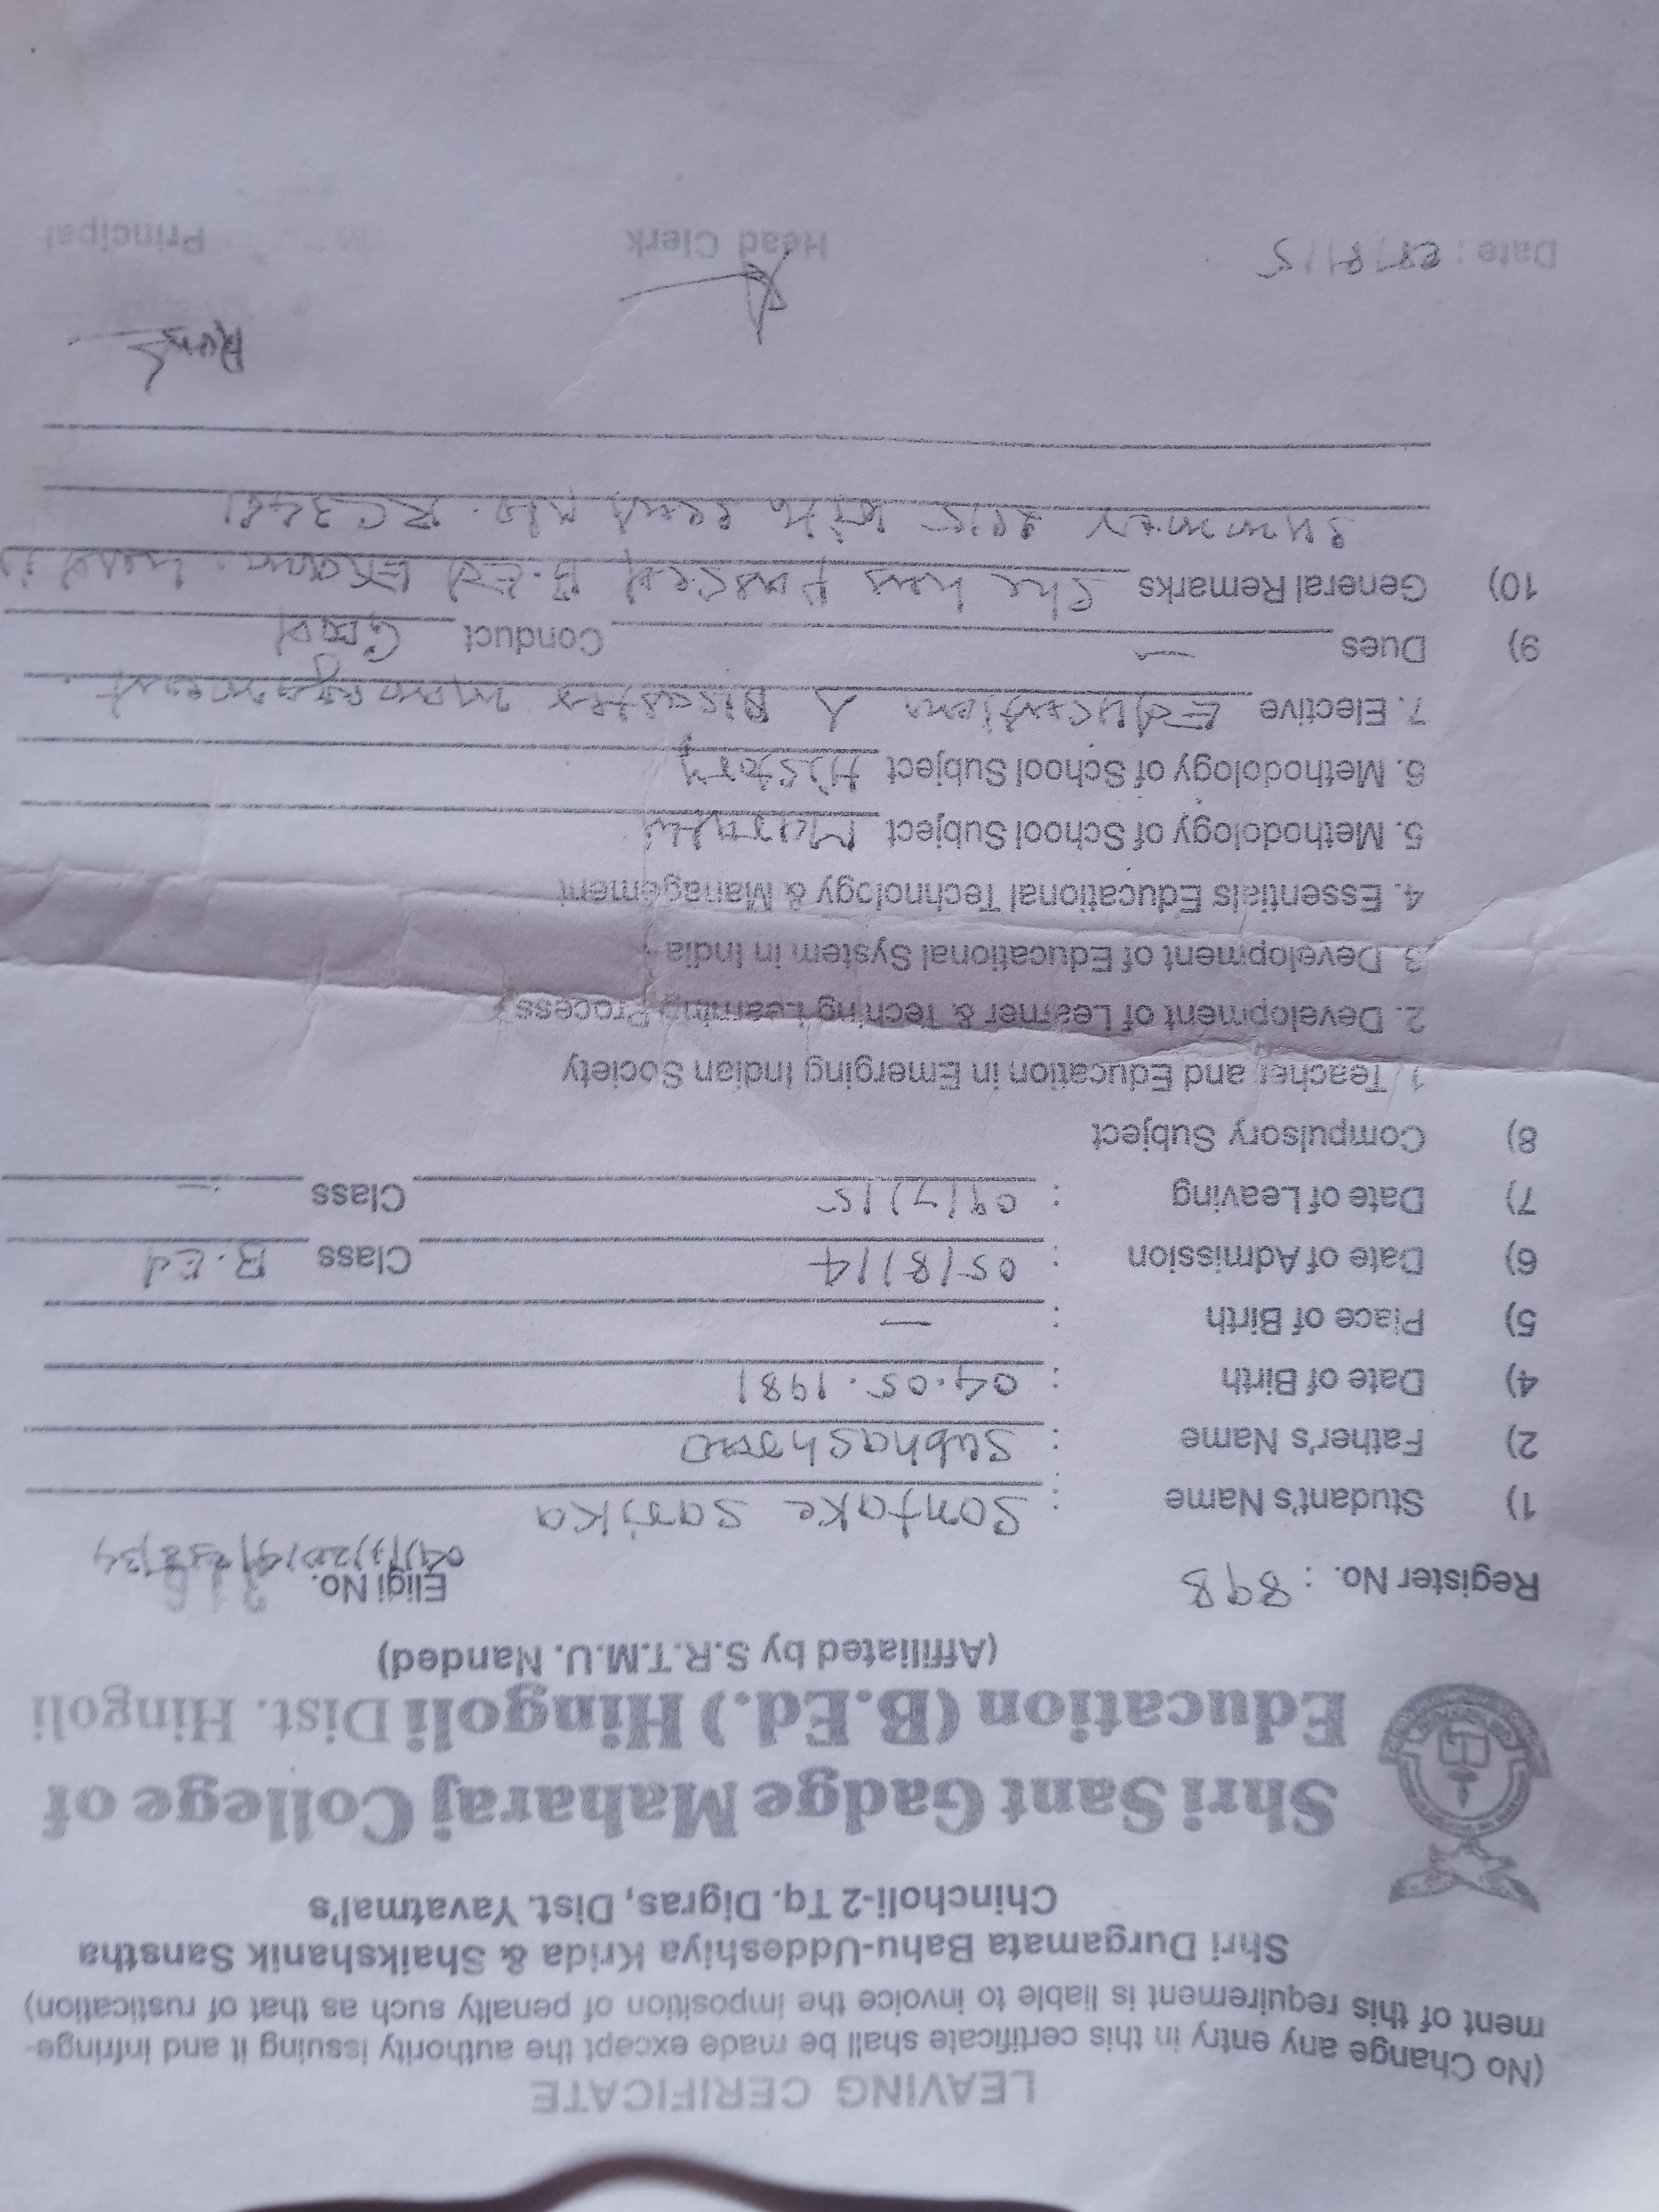 LEAVING CERIFICATE
(No Change any entry in this certificate shall be made except the authority issuing it and infringe-
ment of this requirement is liable to invoice the imposition of penalty such as that of rustication)
Shri Durgamata Bahu-Uddeshiya Krida & Shaikshanik Sanstha
Chincholi-2 Tq. Digras, Dist. Yavatmal's
Shri Sant Gadge Maharaj College of
Education (B.Ed.) Hingoli Dist. Hingoli
(Affiliated by S.R.T.M.U. Nanded)
Register No. : 898 Eligi No.
1) Studant's Name : Sontake Sarika
2) Father's Name : Subhashrao
4) Date of Birth : 04.05.1981
5) Place of Birth : —
6) Date of Admission : 05/8/14 Class B.Ed
7) Date of Leaving : 09/7/15 Class —
8) Compulsory Subject
1) Teacher and Education in Emerging Indian Society
2. Development of Learner & Teching Learning Process
3. Development of Educational System in India
4. Essentials Educational Technology & Management
5. Methodology of School Subject Marathi
6. Methodology of School Subject History
7. Elective Educations & Disaster management.
9) Dues — Conduct Good
10) General Remarks She has passed B.Ed Exam. held in
summer 2015 with seat No.
Date : Head Clerk Principal